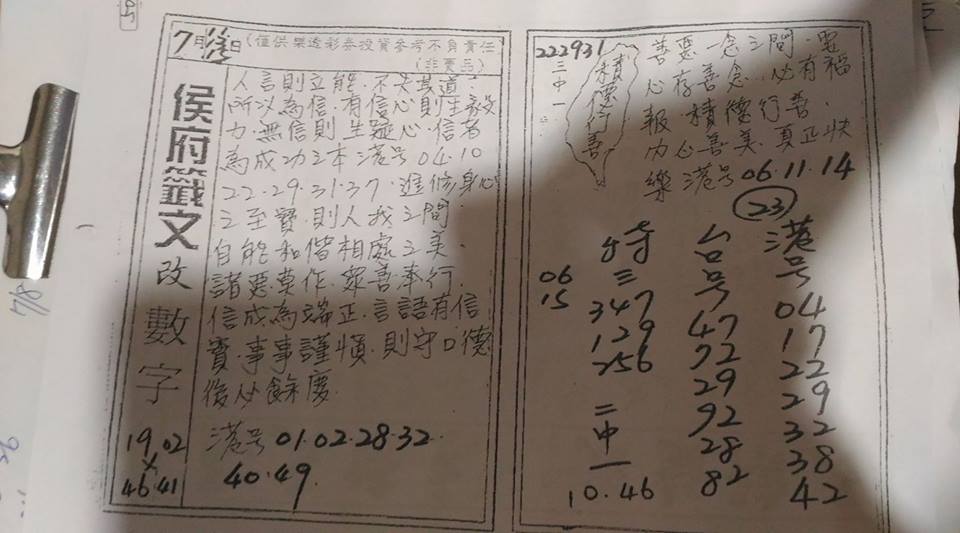 7月 日(僅供樂透彩券投資參考不負責任
(非賣品)
侯府籤文改數字
人言則立能.不失其道.
所以為信.有信心則生毅
力.無信則生疑心.信者
為成功之本港号04.10
22.29.31.37.進修身心
之至寶.則人我之間.
自能和偕相處之美.
諸惡莫作.眾善奉行.
信成為端正.言語有信
實.事事謹慎.則守口德
後必餘慶.
19.02
X
46.41
港号01.02.28.32.
40.49.
222931
三中一
積德行善
善惡一念之間.
心存善念.必有福
報.積德行善.
內心善美.真正快
樂港号06.11.14
23
特三
06
15
347
129
256
二中一
10.46
台号
47
72
29
92
28
82
港号
04
17
22
29
32
38
42